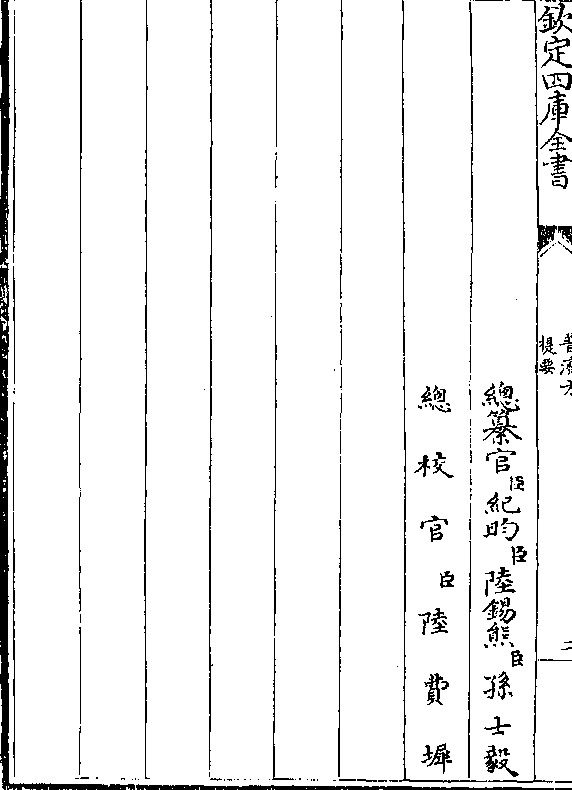 欽定四庫全書
普濟方
提要
二
總纂官臣紀昀臣陸錫熊臣孫士毅
總校官臣陸費墀